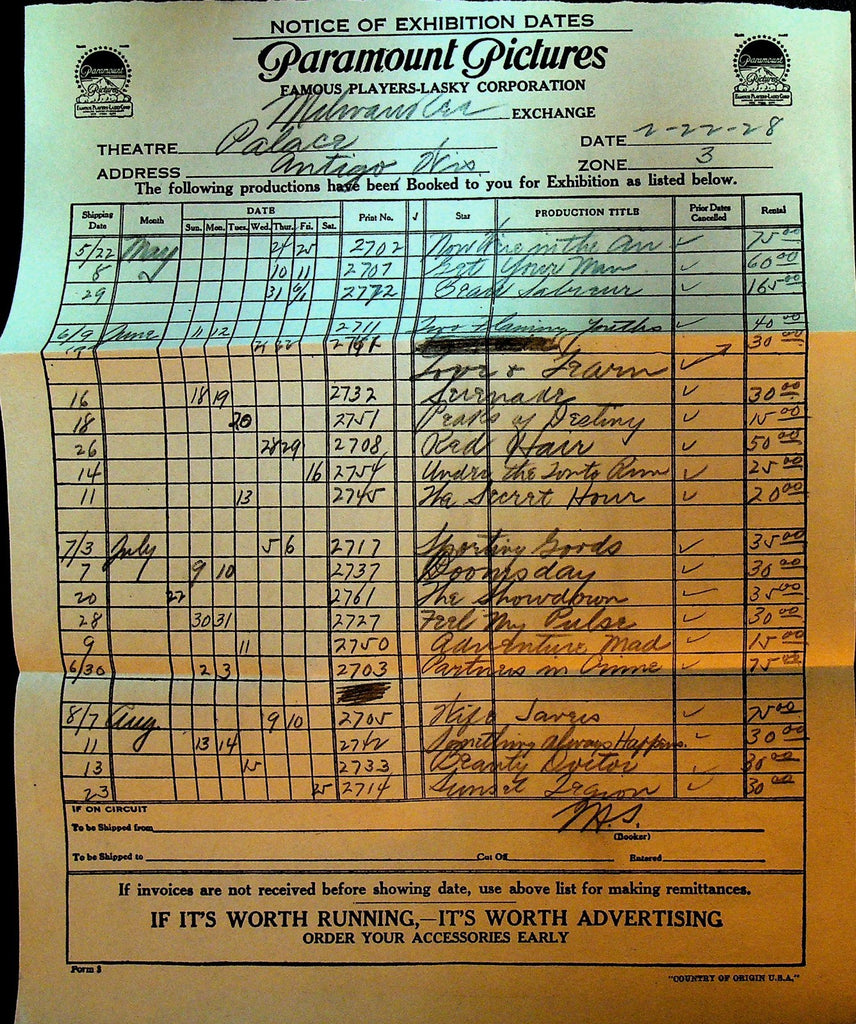 NOTICE OF EXHIBITION DATES
Paramount Pictures
FAMOUS PLAYERS-LASKY CORPORATION
Milwaukee EXCHANGE
THEATRE Palace DATE 2-22-28
ADDRESS Antigo, Wis ZONE 3
The following productions have been Booked to you for Exhibition as listed below.
Shipping Date Month DATE Sun. Mon. Tues. Wed. Thur. Fri. Sat. Print No. √ Star PRODUCTION TITLE Prior Dates Cancelled Rental
5/22 May 24 25 2702 Now We're in the Air ✓ 75 00
8 10 11 2707 Get Your Man ✓ 60 00
29 31 6/1 2772 Beau Sabreur ✓ 165 00
6/9 June 11 12 2711 Two Flaming Youths ✓ 40 00
21 22 30 00
Love & Learn ✓
16 18 19 2732 Serenade ✓ 30 00
18 20 2751 Peaks of Destiny ✓ 15 00
26 28 29 2708 Red Hair ✓ 50 00
14 16 2754 Under the Tonto Rim ✓ 25 00
11 13 2745 The Secret Hour ✓ 20 00
7/3 July 5 6 2717 Sporting Goods ✓ 35 00
7 9 10 2737 Doomsday ✓ 30 00
20 22 2761 The Showdown ✓ 35 00
28 30 31 2727 Feel My Pulse ✓ 30 00
9 11 2750 Adventure Mad ✓ 15 00
6/30 2 3 2703 Partners in Crime ✓ 75 00
8/7 Aug. 9 10 2705 Wife Savers ✓ 75 00
11 13 14 2712 Something Always Happens. ✓ 30 00
13 15 2733 Beauty Doctor ✓ 30 00
23 25 2714 Sunset Legion ✓ 30 00
IF ON CIRCUIT
To be Shipped from
(Booker)
To be Shipped to Cut Off Entered
If invoices are not received before showing date, use above list for making remittances.
IF IT'S WORTH RUNNING,—IT'S WORTH ADVERTISING
ORDER YOUR ACCESSORIES EARLY
Form 3
"COUNTRY OF ORIGIN U.S.A."